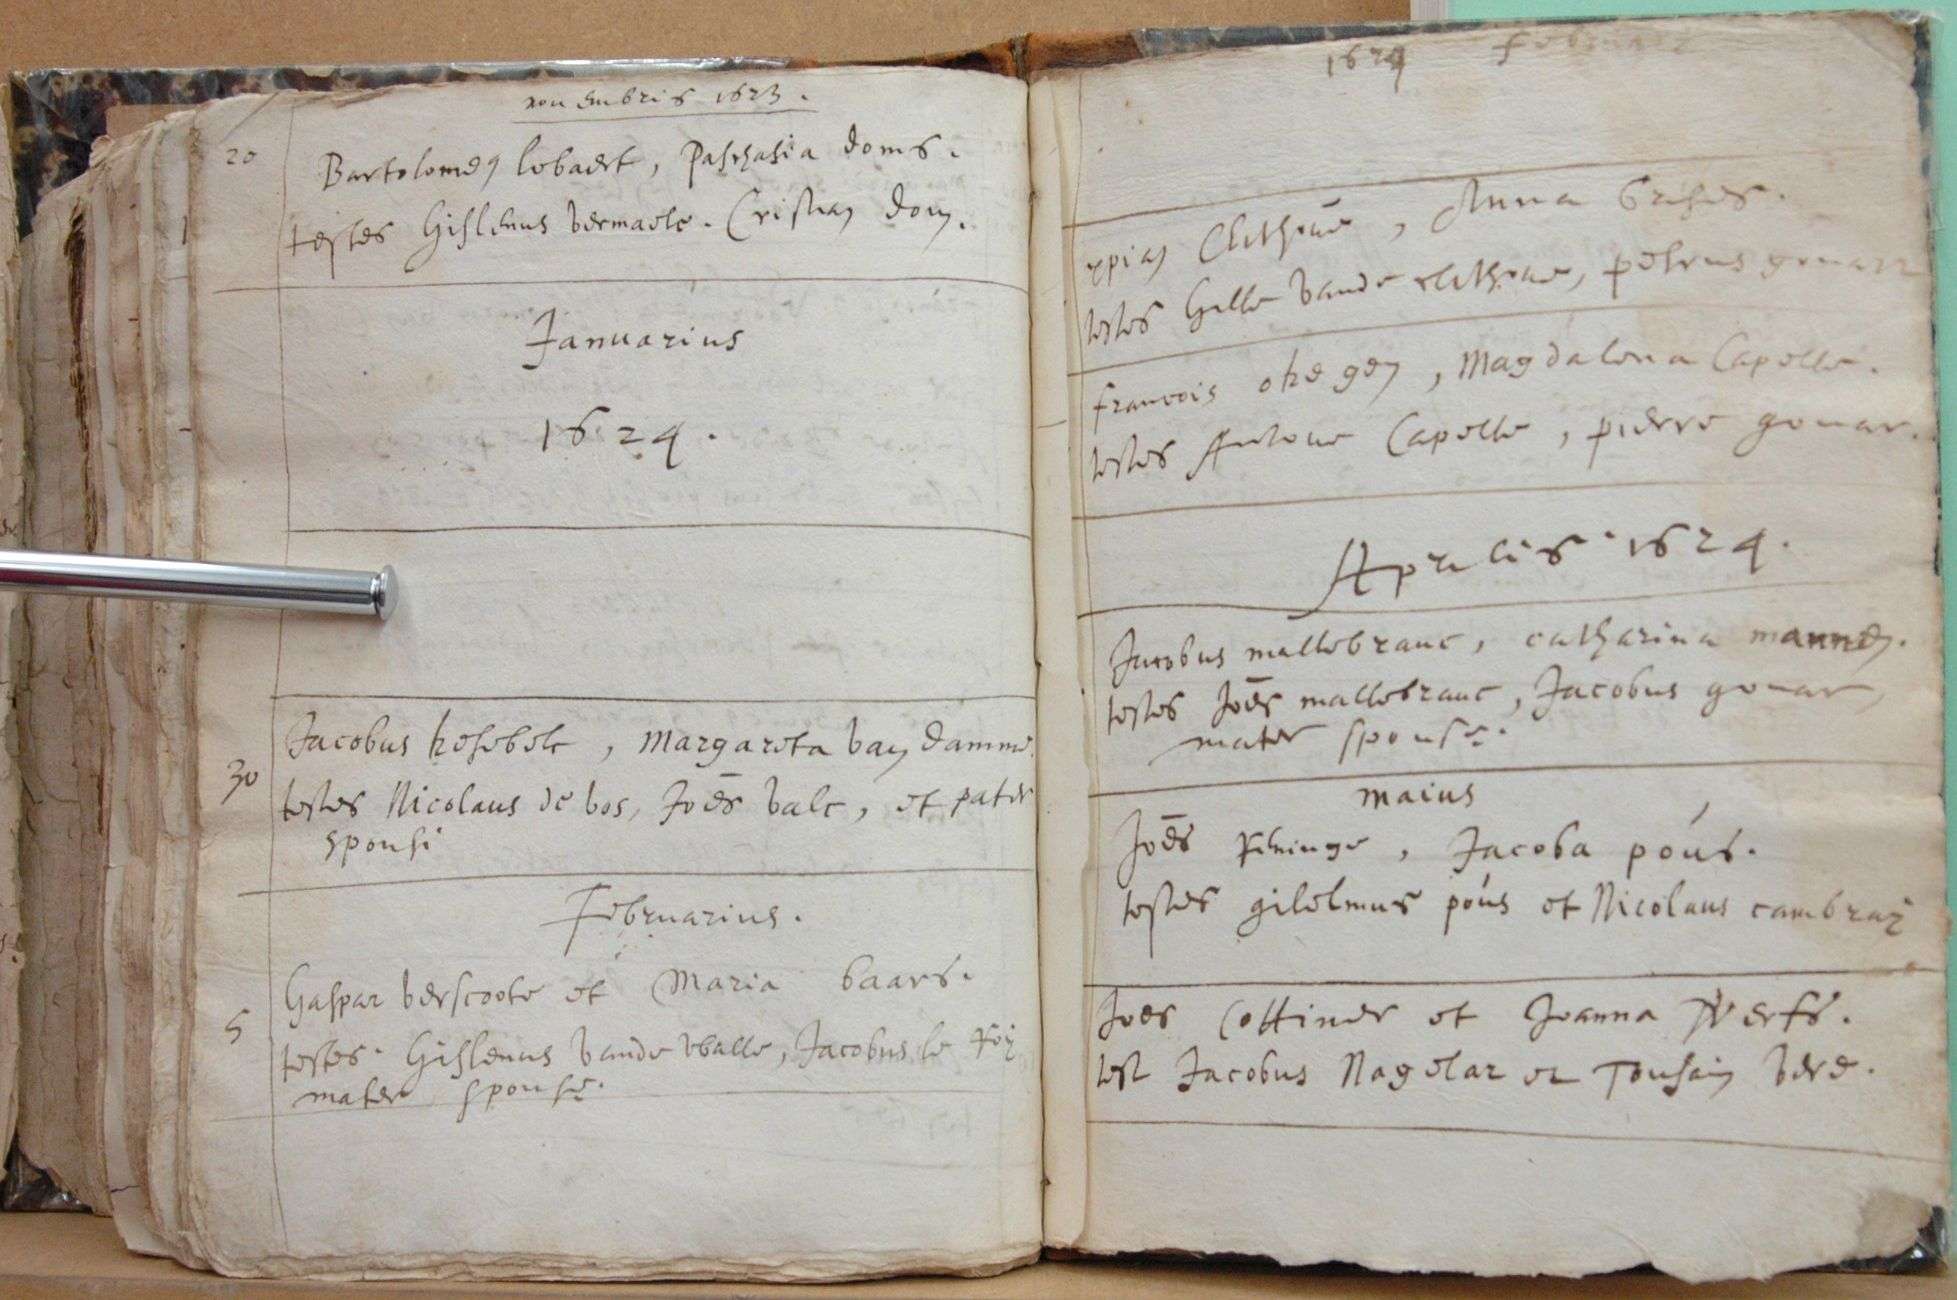 nouembris 1623.
20 Bartolomeus lobaert, Pashasia doms.
testes Gislenus vermaele. Cristian dom.
Januarius
1624.
Jacobus kesebele, Margareta van damme.
30
testes Nicolaus de vos, Joes valc, et pater
sponsi
Februarius.
Gaspar verscoote et Maria baars.
5
testes. Gislenus vande walle, Jacobus le
mater sponse.
1624 Februarii
Anna
testes Gille vande petrus gouar
francois Magdalena Capelle.
testes Antone Capelle, pierre gouar.
Aprilis 1624.
Jacobus mallebranc, catharina
testes Joes mallebranc, Jacobus gouar
mater sponse.
maius
Joes Jacoba poús.
testes gilelmus poús et Nicolaus cambray
Joes Cottines et Joanna
test Jacobus Nagelar et Tousain bere.